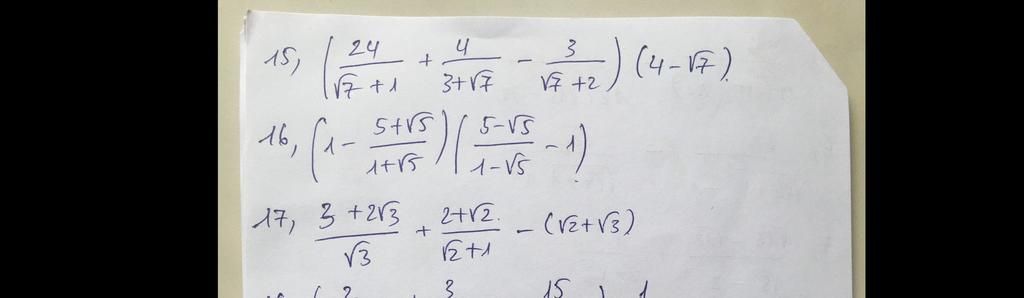 15, (24/(√7+1) + 4/(3+√7) - 3/(√7+2)) (4-√7).
16, (1 - (5+√5)/(1+√5)) ((5-√5)/(1-√5) - 1)
17, (3+2√3)/√3 + (2+√2)/(√2+1) - (√2+√3)